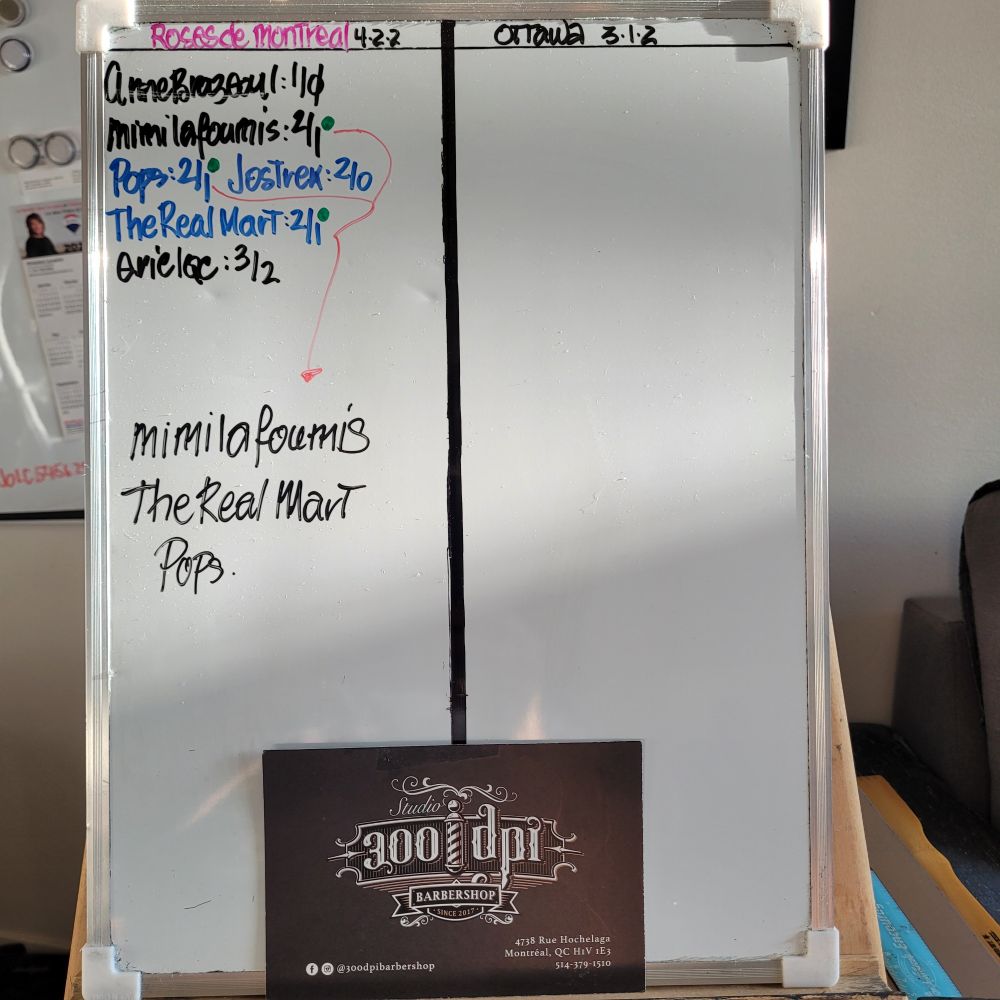 Roses de Montreal 4.2.2
Ottawa 3.1.2
mimilafourmis: 2/1
Pops: 2/1 Jostrex: 2/0
The Real Mart: 2/1
arielqc: 3/2
mimilafourmis
The Real Mart
Pops.
Studio
300 dpi
BARBERSHOP
SINCE 2017
4738 Rue Hochelaga
Montréal, QC H1V 1E3
514-379-1510
@300dpibarbershop